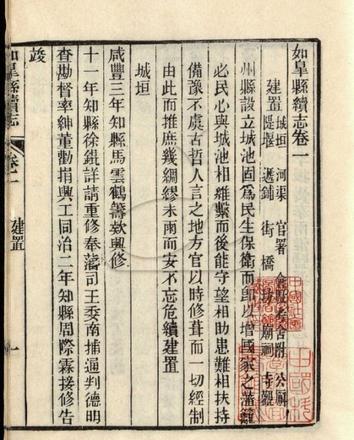 如皋縣續志卷一
建置 城垣 河渠 官署 公廨
隄堰 鋪 街橋 廟祠 寺觀
州縣設立城池固為民生保衛而卽以增國家之藩籬
必民心與城池相維繫而後能守望相助患難相扶持
備豫不虞古哲人言之地方官以時修葺而一切經制
由此而推庶幾綢繆未雨而安不忘危續建置
城垣
咸豐三年知縣馬雲鶴籌款興修
十一年知縣徐 詳請重修奉藩司王委南捕通判德明
查勘督率紳董勸捐興工同治二年知縣周際霖接修告
竣
如皋縣續志
卷一
建置
一